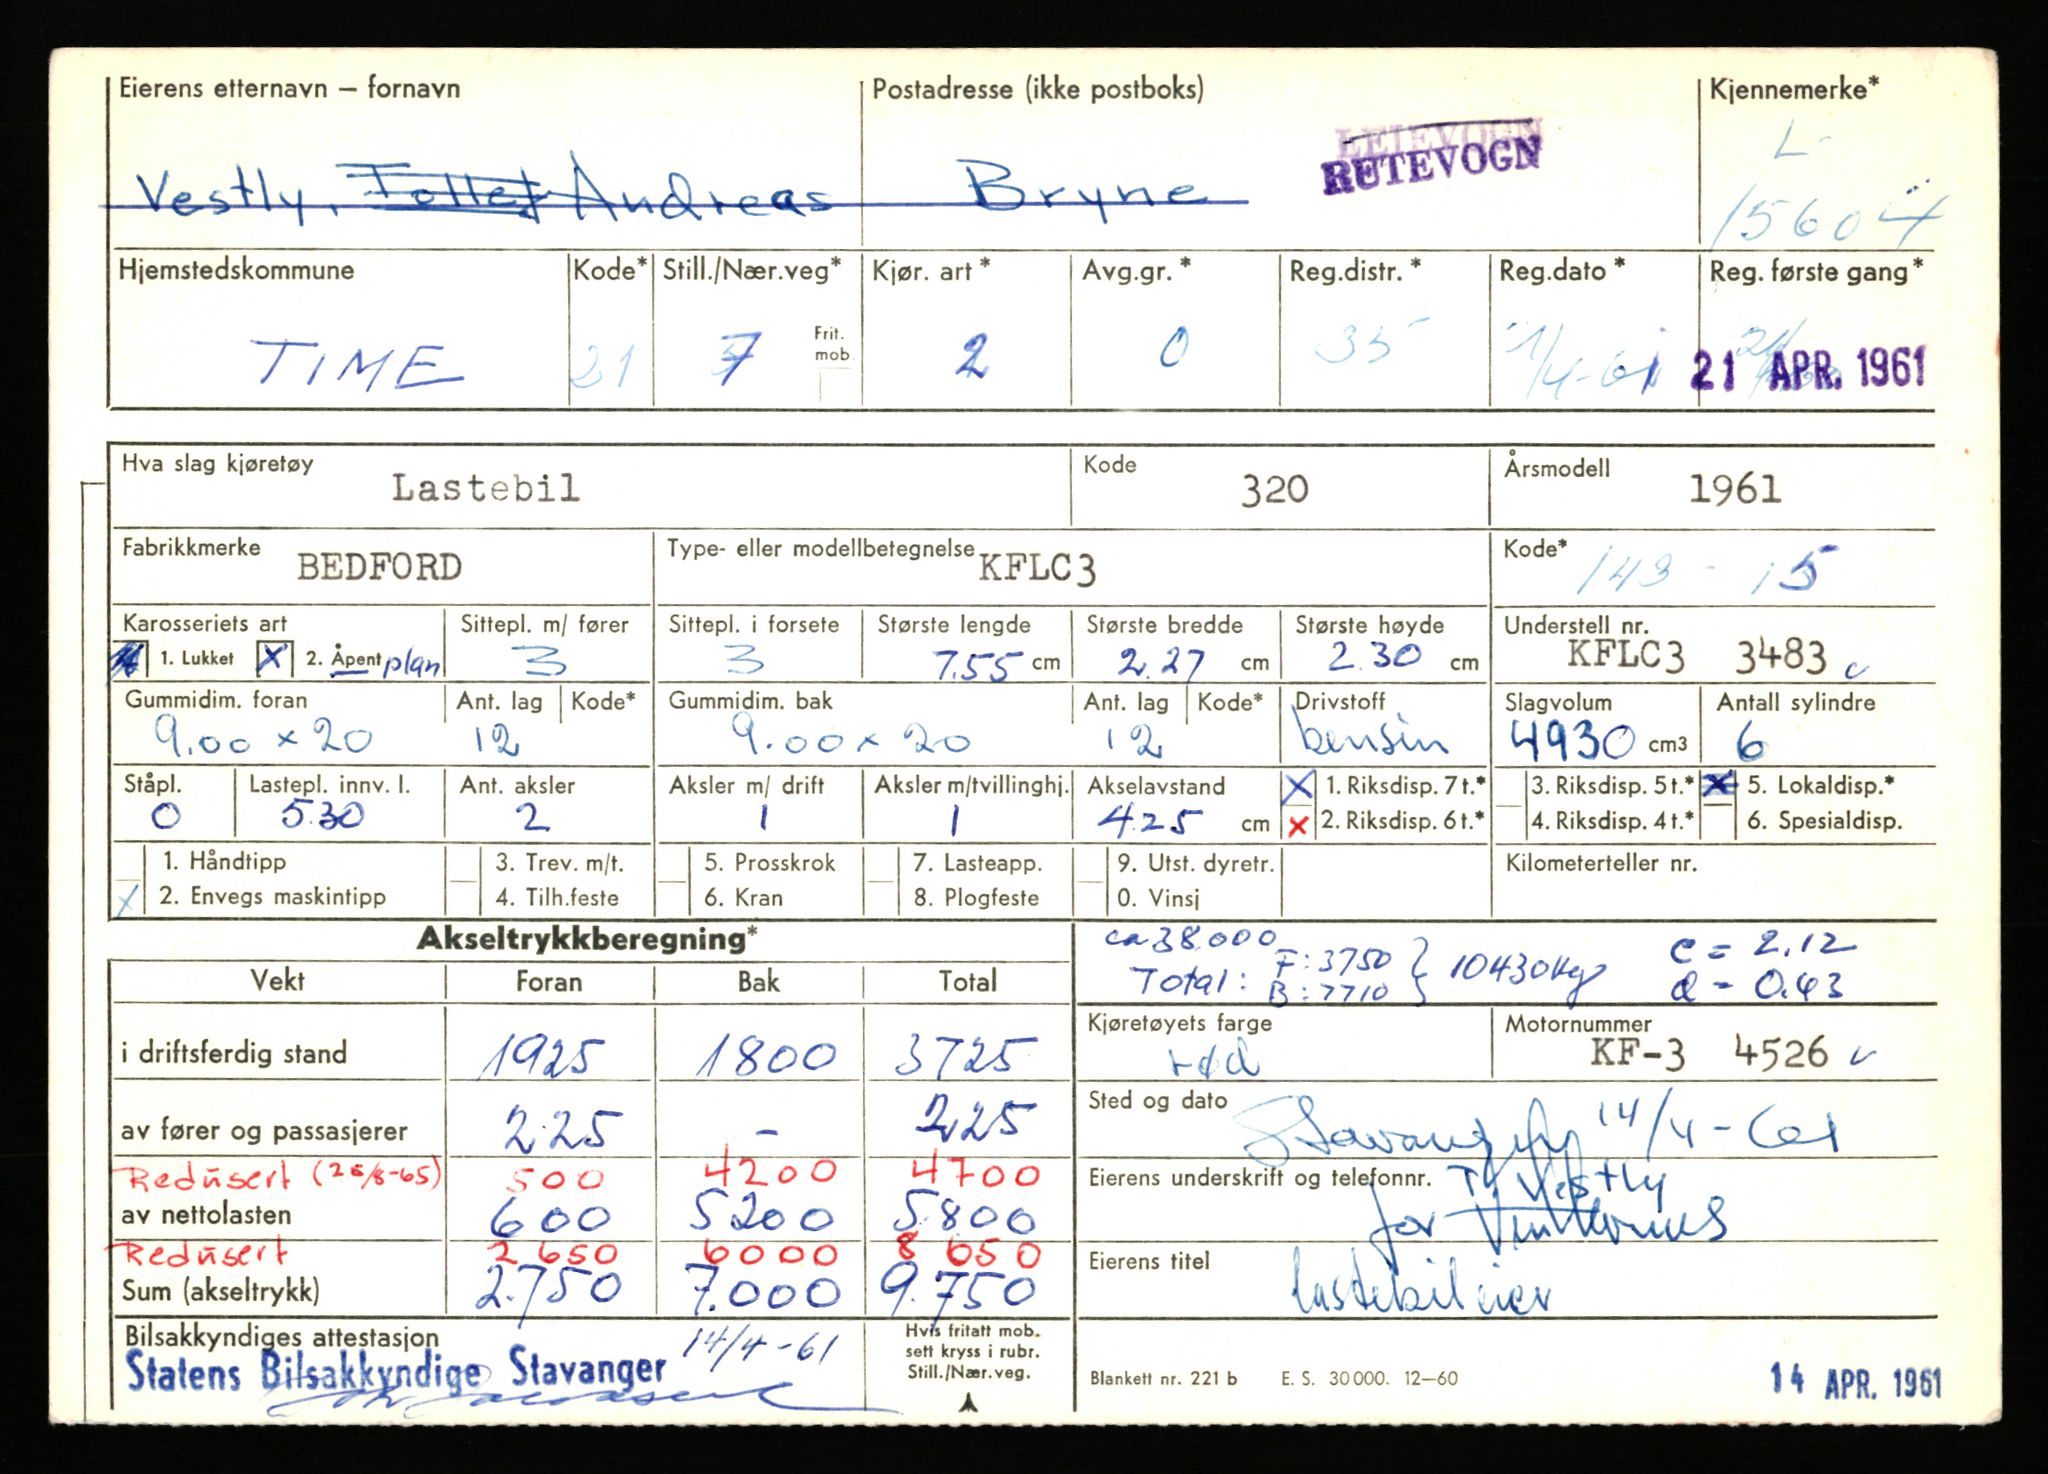 Eierens etternavn – fornavn Postadresse (ikke postboks) Kjennemerke*
LEIEVOGN
RUTEVOGN
Vestly, Tollef Andreas Bryne L- 15604
Hjemstedskommune Kode* Still./Nær.veg* Kjør. art* Avg.gr.* Reg.distr.* Reg.dato* Reg. første gang*
Frit. mob.
TIME 21 7 2 0 35 21 APR. 1961
Hva slag kjøretøy Lastebil Kode 320 Årsmodell 1961
Fabrikkmerke BEDFORD Type- eller modellbetegnelse KFLC3 Kode* 143 - 15
Karosseriets art Sittepl. m/ fører Sittepl. i forsete Største lengde Største bredde Største høyde Understell nr.
1. Lukket X 2. Åpent plan 3 3 7.55 cm 2.27 cm 2.30 cm KFLC3 3483
Gummidim. foran Ant. lag Kode* Gummidim. bak Ant. lag Kode* Drivstoff Slagvolum Antall sylindre
9.00 x 20 12 9.00 x 20 12 bensin 4930 cm3 6
Ståpl. Lastepl. innv. l. Ant. aksler Aksler m/ drift Aksler m/tvillinghj. Akselavstand X 1. Riksdisp. 7 t.* 3. Riksdisp. 5 t.* X 5. Lokaldisp.*
0 5.30 2 1 1 4.25 cm x 2. Riksdisp. 6 t.* 4. Riksdisp. 4 t.* 6. Spesialdisp.
1. Håndtipp 3. Trev. m/t. 5. Prosskrok 7. Lasteapp. 9. Utst. dyretr. Kilometerteller nr.
x 2. Envegs maskintipp 4. Tilh.feste 6. Kran 8. Plogfeste 0. Vinsj
Akseltrykkberegning* ca 38.000
Total: F: 3750 B: 7710 } 10430 kg c = 2.12 d = 0.43
Vekt Foran Bak Total
Kjøretøyets farge Motornummer
i driftsferdig stand 1925 1800 3725 rød KF-3 4526
Sted og dato Stavanger 14/4-61
av fører og passasjerer 225 – 225
Redusert (26/8-65) 500 4200 4700
Eierens underskrift og telefonnr. T. Vestly
av nettolasten 600 5200 5.800 for
Redusert 2 650 6000 8 650
Eierens titel lastebileier
Sum (akseltrykk) 2.750 7.000 9.750
Bilsakkyndiges attestasjon 14/4-61 Hvis fritatt mob.
sett kryss i rubr.
Still./Nær.veg.
Statens Bilsakkyndige Stavanger
Blankett nr. 221 b E. S. 30 000. 12–60 14 APR. 1961